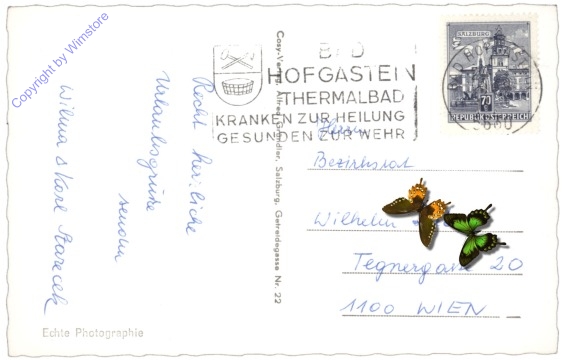 Copyright by Wimstore
Recht herzliche
Urlaubsgrüße
senden
Wilma & Karl
Echte Photographie
Cosy-Verlag Alfred Gründler, Salzburg, Getreidegasse Nr. 22
BAD
HOFGASTEIN
THERMALBAD
KRANKEN ZUR HEILUNG
GESUNDEN ZUR WEHR
SALZBURG
70
REPUBLIK ÖSTERREICH
Herrn
Bezirksrat
Wilhelm
20
1100 WIEN